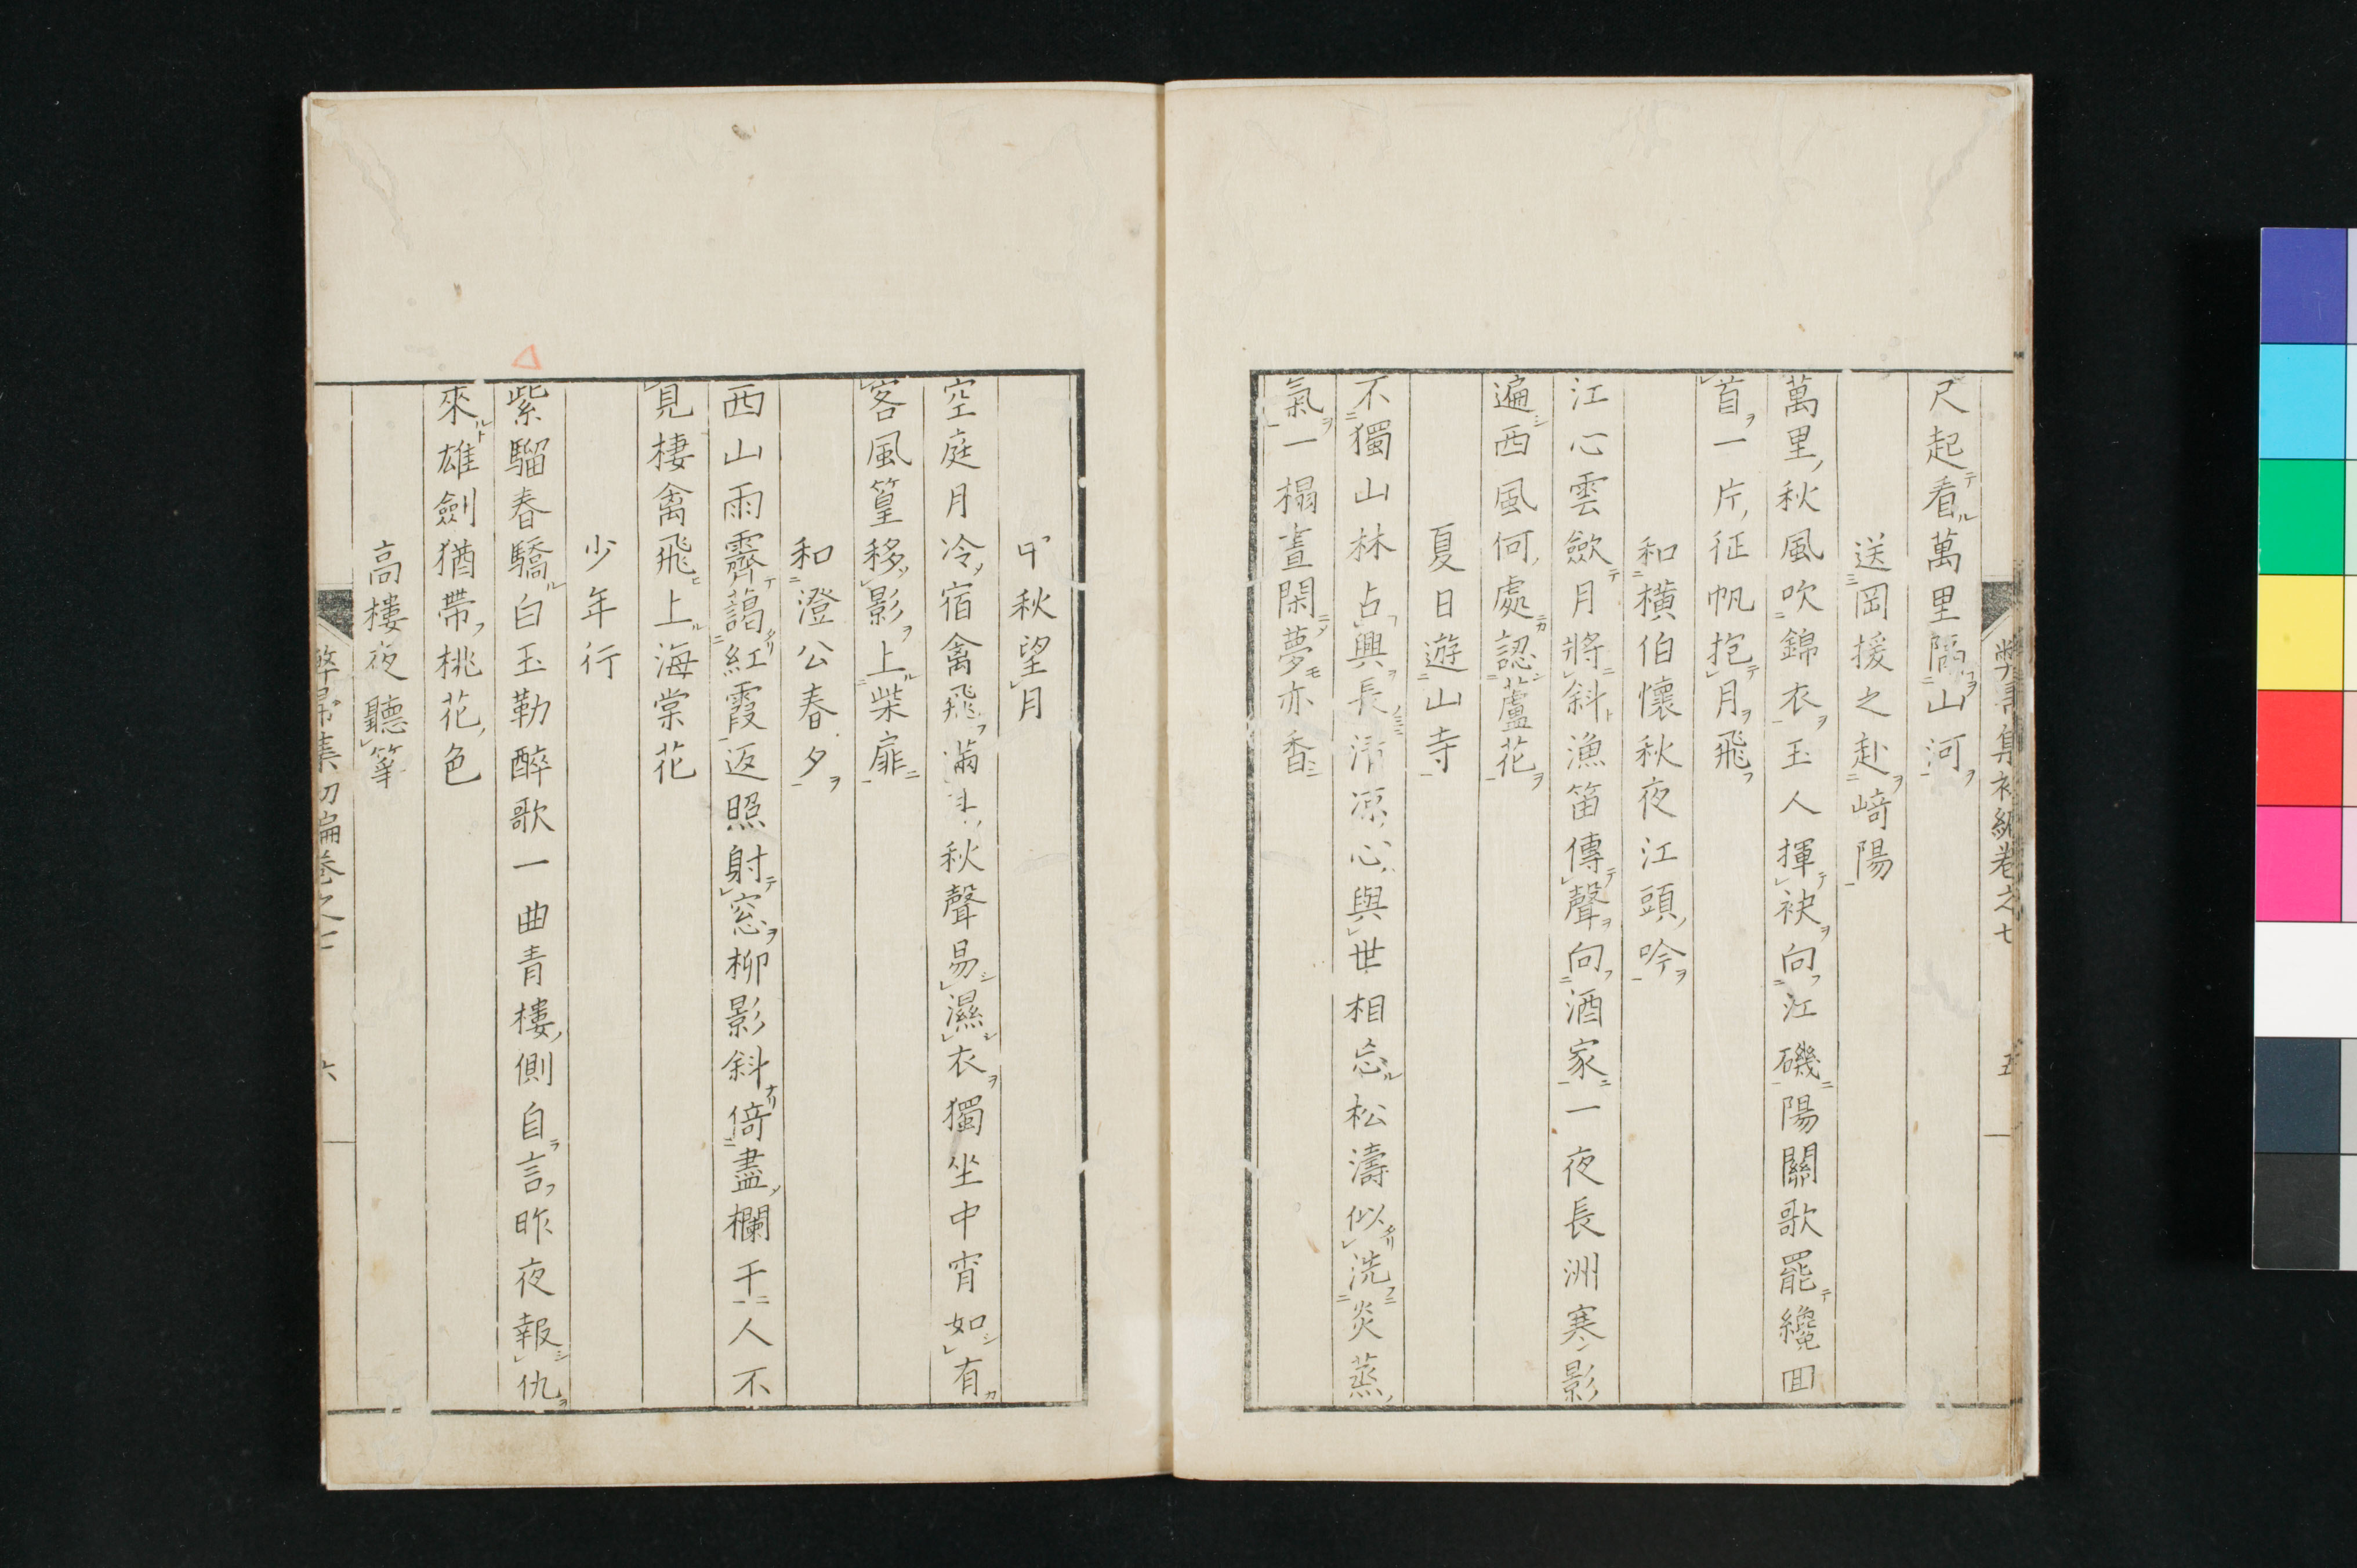 尺起看萬里隔山河
送岡援之赴﨑陽
萬里秋風吹錦衣玉人揮袂向江磯陽關歌罷纔回
首一片征帆抱月飛
和橫伯懷秋夜江頭吟
江心雲歛月將斜漁笛傳聲向酒家一夜長洲寒影
遍西風何處認蘆花
夏日遊山寺
不獨山林占興長清凉心與世相忘松濤似洗炎蒸
氣一榻晝閑夢亦香
中秋望月
空庭月冷宿禽飛滿地秋聲易濕衣獨坐中宵如有
客風篁移影上柴扉
和澄公春夕
西山雨霽藹紅霞返照射窓柳影斜倚盡欄干人不
見棲禽飛上海棠花
少年行
紫騮春驕白玉勒醉歌一曲青樓側自言昨夜報仇
來雄劍猶帶桃花色
高樓夜聽箏
集初編卷之七
六